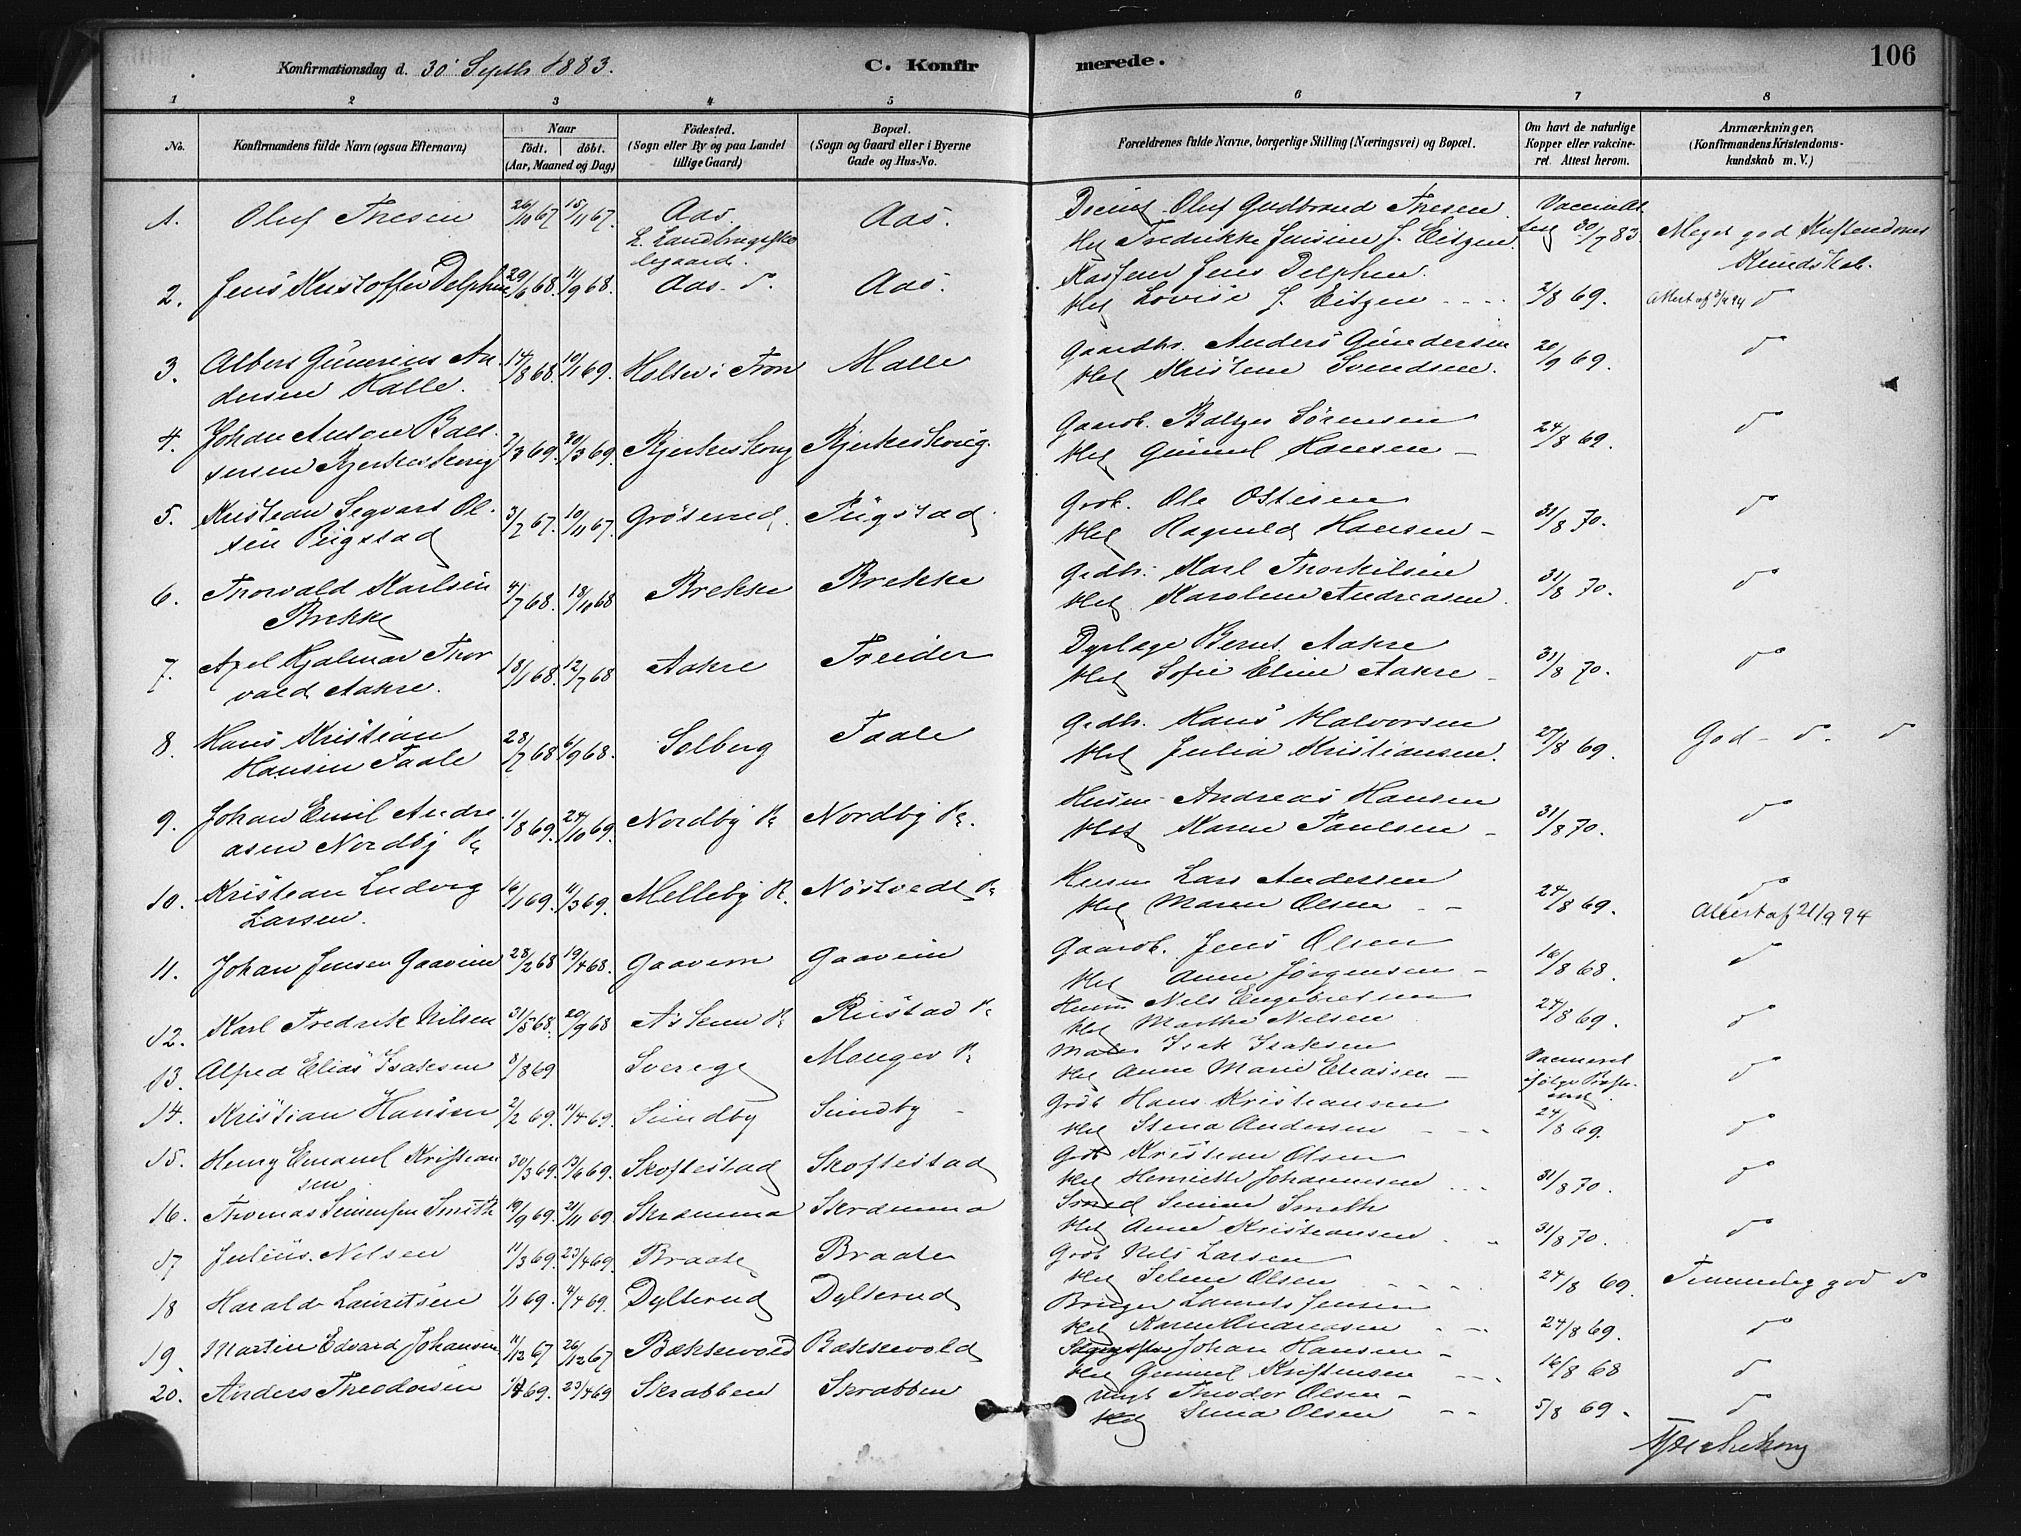 Konfirmationsdag d. 30' Septb 1883.
C. Konfirmerede.
106
1 2 3 4 5 6 7 8
No.
Konfirmandens fulde Navn (ogsaa Efternavn)
Naar
født. døbt.
(Aar, Maaned og Dag)
Fødested.
(Sogn eller By og paa Landet
tillige Gaard)
Bopæl.
(Sogn og Gaard eller i Byerne
Gade og Hus-No.
Forældrenes fulde Navne, borgerlige Stilling (Næringsvei) og Bopæl.
Om havt de naturlige
Kopper eller vakcine-
ret. Attest herom.
Anmærkninger.
(Konfirmandens Kristendoms-
kundskab m. V.)
1. Oluf Thesen 26/10 67 15/11 67. Aas. Aas. Oluf Gudbrand Thesen
L. Landbrugsskolegaard.
Hst Fredrikke f. Eitzen 30/7 83 Meget god Kristendoms
Kundskab.
2. Jens Kristoffer Delphin 29/6 68. 11/9 68. Aas. do. Aas. Jens Delphin
Hst Lovise f. Eitzen 2/8 69. Attest af do
3. Albert Gunerius Andersen Halle. 14/8 68. 10/1 69. Holter i Fron Halle Gaardbr. Anders Gundersen
Hst Kristine Svendsen. 20/9 69. do
4. Johan Anton Baltsersen Bjerkeskoug 2/3 69. 20/3 69. Bjerkeskoug Bjerkeskoug. Gaardb. Baltzer Sørensen
Hst Gunnel Hansen 24/8 69. do
5. Kristian Segvart Olsen Pugstad 3/7 67. 10/11 67. Grøterud Pugstad Grdb. Ole Ostesen
Hst Ragnild Hansen 31/8 70. do
6. Thorvald Karlsen Brekke 4/7 68. 18/10 68 Brekke Brekke Grdbr. Karl Thorkilsen
Hst Karoline Andreasen. 31/8 70. do
7. Axel Hjalmar Thorvald Aakre. 18/1 68. 12/7 68 Aakre Freider Dyrlæge Bernt Aakre
Hst Sofie Eline Aakre 31/8 70. do
8. Hans Kristian Hansen Faale 28/7 68 6/9 68. Solberg Faale Grdbr. Hans Halvorsen
Hst Julia Kristiansen. 27/8 69. God do. do
9. Johan Emil Andreasen Nordby 1/8 69. 24/10 69. Nordby Nordby Husm Andreas Hansen
Hst Karen Paulsen 31/8 70. do
10. Kristian Ludvig Larsen. 16/1 69. 11/3 69. Melleby Nøstvedt Husm Lars Andersen
Hst Maren Olsen 24/8 69. do
Attest af 21/9 94
11. Johan Jensen Gaavim 28/2 68 19/4 68. Gaavim Gaavim Gaardb. Jens Olsen
Hst Anne Jørgensen 16/8 68. do
12. Karl Fredrik Nilsen 31/8 68. 20/9 68 Askem Rustad Husm Nils Engebretsen
Hst Marthe Nilsen 24/8 69. do
13. Alfred Elias Isaksen 8/8 69 Sverige Monger Isak Isaksen
Hst Anne Marie Eliassen do
14. Kristian Hansen 2/2 69. 11/4 69. Sundby Sundby Grdb Hans Kristiansen
Hst Stena Andersen 24/8 69. do
15. Henry Emanuel Kristiansen 30/3 69. 13/6 69. Skoftestad Skoftestad Grdb Kristian Olsen
Hst Henriette Johannesen 31/8 70. do
16. Thomas Simensen Smith 19/9 69. 21/11 69. Skramma Skramma Smed Simen Smith
Hst Anne Kristiansen 31/8 70. do
17 Julius Nilsen 11/3 69. 23/4 69. Braate Braate Grdb Nils Larsen
Hst Selene Olsen 24/8 69. Temmelig god do
18 Harald Lauritsen 1/1 69. 4/4 69. Dylterud Dylterud Bruger Laurits Jensen
Hst Karen Andreasen 24/8 69. do
19. Martin Edvard Johansen 11/12 67 26/12 67 Bækkevold Bækkevold Johan Hansen
Hst Gunnel Kristensen 16/8 68 do
20. Anders Theodorsen 69. 23/4 69 Skrabben Skrabben Theodor Olsen
Hst Sina Olsen 5/8 69. do